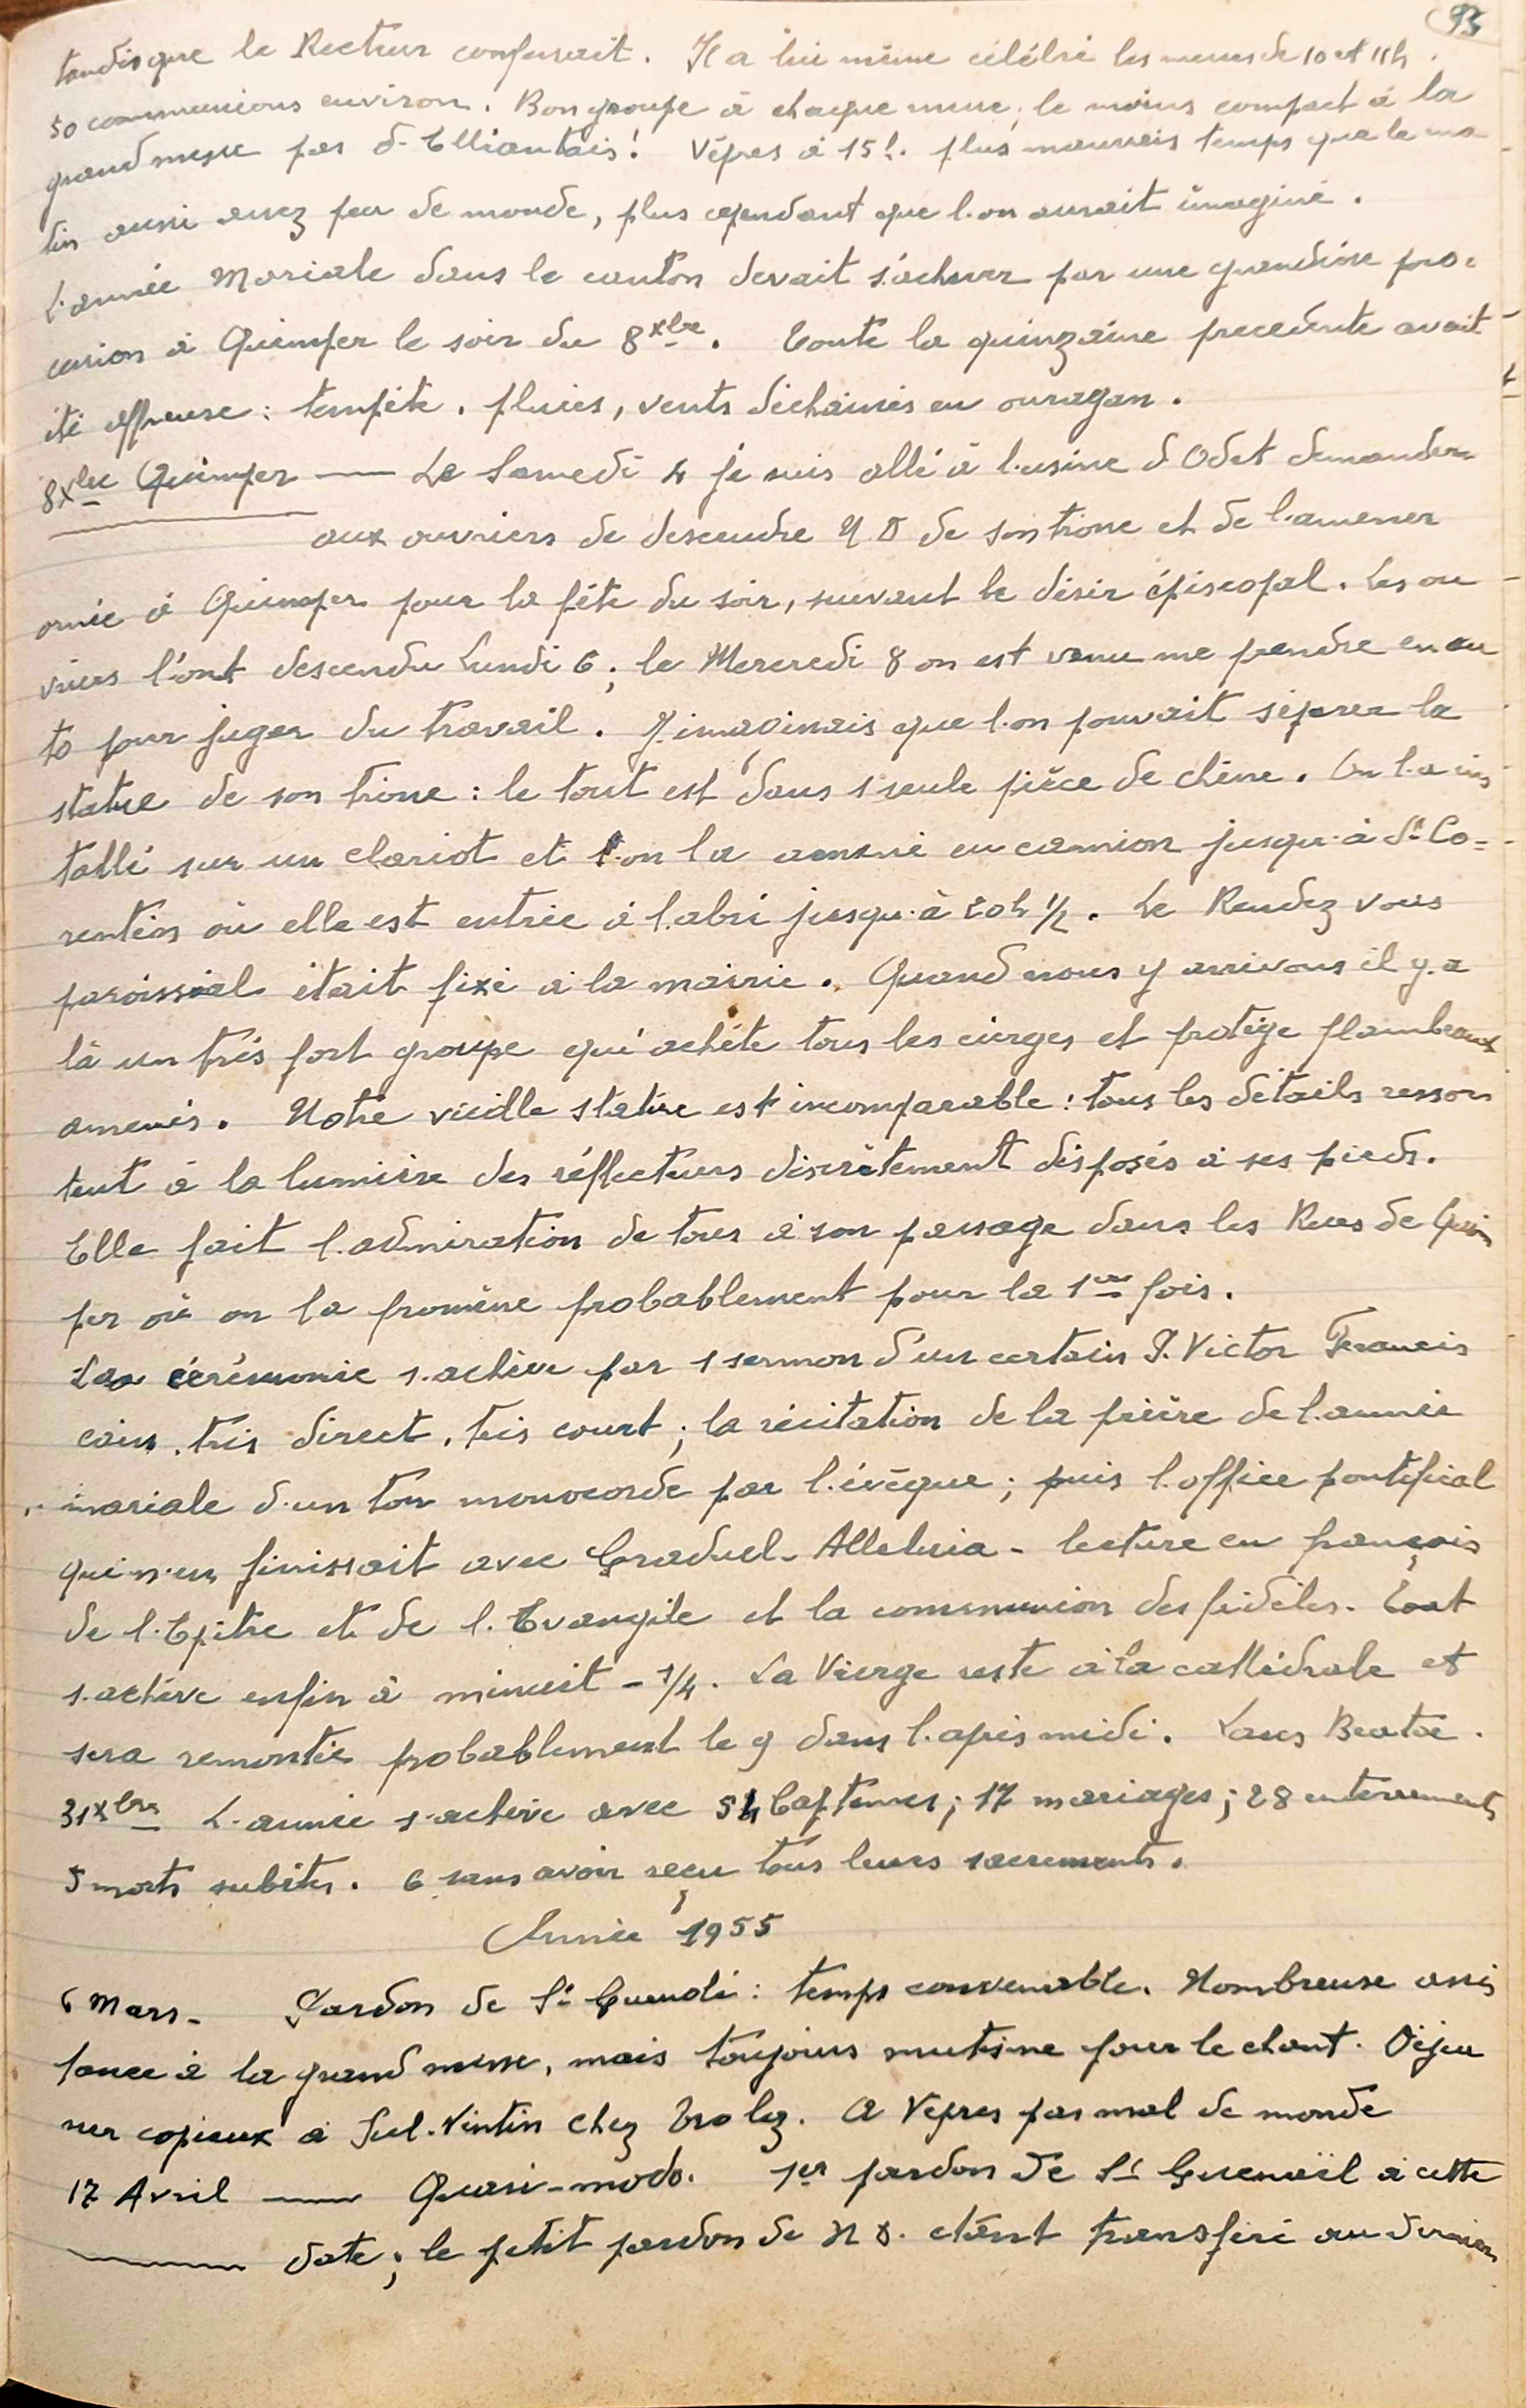 93
tandis que le Recteur confessait. Il a lui même célébré les messes de 10 et 11h.
50 communions environ. Bon groupe à chaque messe, le moins compact à la
grand messe pas d'Elliantais! Vêpres à 15h. plus mauvais temps que le ma
tin aussi assez peu de monde, plus cependant que l'on aurait imaginé.
L'année Mariale dans le canton devait s'achever par une grandiose pro=
cession à Quimper le soir du 8 Xbre. Toute la quinzaine precedente avait
été affreuse : tempête, pluies, vents déchainés en ouragan.
8 Xbre Quimper — Le Samedi 4 je suis allé à l'usine d'Odet demander
aux ouvriers de descendre N.D de son trone et de l'amener
ornée à Quimper pour la fête du soir, suivant le désir épiscopal. Les ou
vriers l'ont descendu Lundi 6; le Mercredi 8 on est venu me prendre en au
to pour juger du travail. J'imaginais que l'on pouvait séparer la
statue de son trône : le tout est dans 1 seule pièce de chêne. On l'a ins
tallé sur un chariot et l'on la amené en camion jusqu'à St Co=
rentin où elle est entrée à l'abri jusqu'à 20h 1/2. Le Rendez vous
paroissial était fixé à la mairie. Quand nous y arrivons il y a
là un très fort groupe qui achète tous les cierges et protège flambeaux
amenés. Notre vieille statue est incomparable : tous les détails ressor
tent à la lumière des réflecteurs discrètement disposés à ses pieds.
Elle fait l'admiration de tous à son passage dans les Rues de Quim
per où on la promène probablement pour la 1ere fois.
La cérémonie s'achève par 1 sermon d'un certain P. Victor Francis
cain, très direct, très court; la récitation de la prière de l'année
mariale d'un ton monocorde par l'évêque; puis l'office pontifical
qui n'en finissait avec Graduel - Alleluia - lecture en français
de l'Epitre et de l'Evangile et la communion des fidèles. Tout
s'achève enfin à minuit - 1/4. La Vierge reste à la cathédrale et
sera remontée probablement le 9 dans l'après midi. Laus Beatae.
31 Xbre L'année s'achève avec 54 baptêmes; 17 mariages; 28 enterrements
5 morts subites. 6 sans avoir reçu tous leurs sacrements.
Année 1955
6 Mars - Pardon de St Guenolé : temps convenable. Nombreuse assis
tance à la grand messe, mais toujours mutisme pour le chant. Déjeu
ner copieux à Sul-Vintin chez Troloz. A Vepres pas mal de monde
17 Avril — Quasi-modo. 1er pardon de St Guenaël à cette
date; le petit pardon de N D. étant transféré au dernier